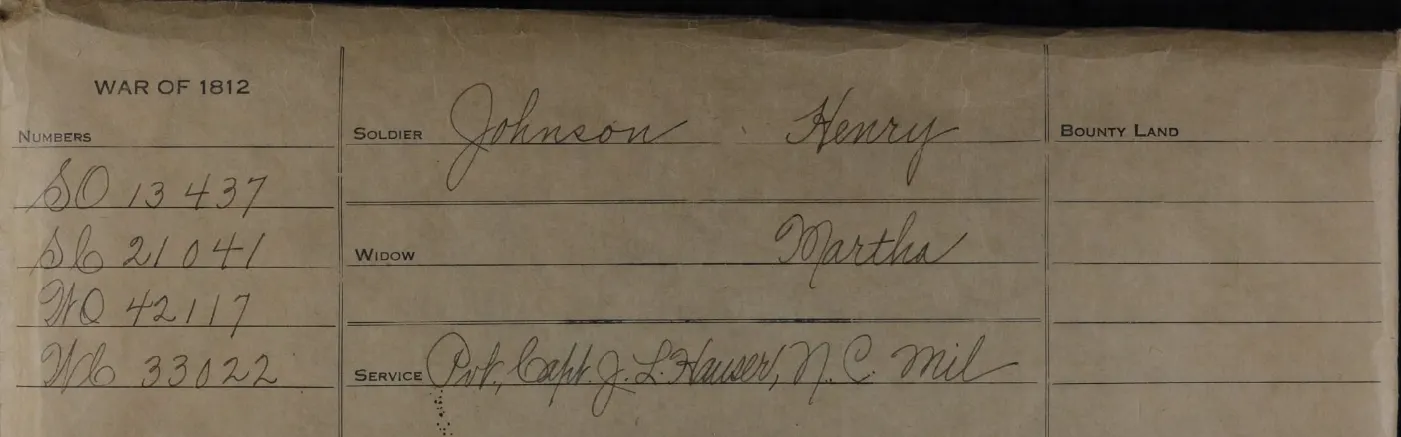 WAR OF 1812
NUMBERS
SO 13437
SC 21041
WO 42117
WC 33022
SOLDIER Johnson Henry
WIDOW Martha
SERVICE Pvt., Capt. J. L. Hauser, N. C. Mil
BOUNTY LAND